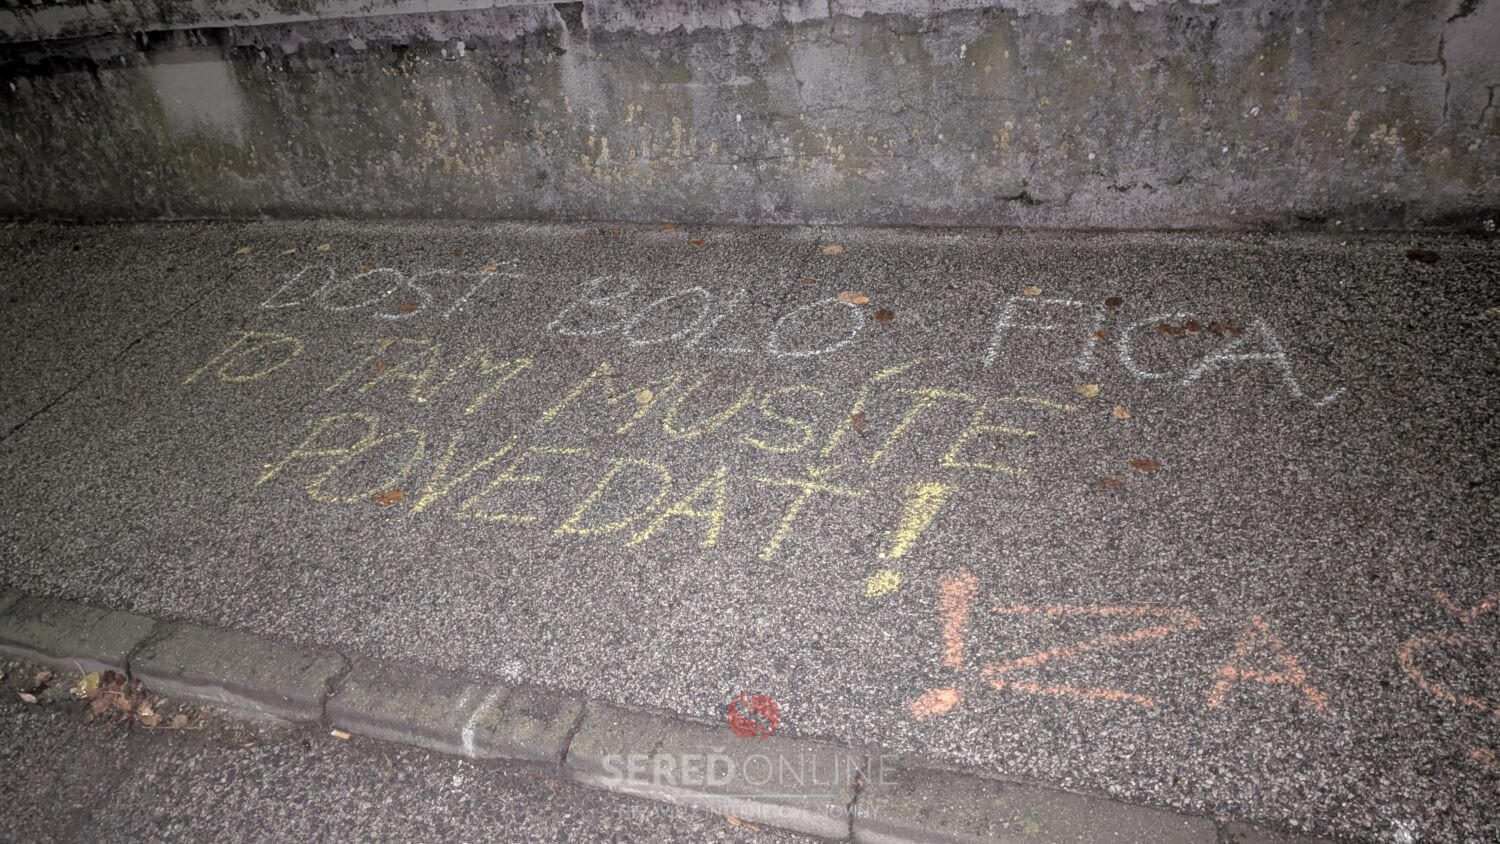 DOSŤ BOLO FICA
TO TAM MUSÍTE
POVEDAŤ!
SEREĎONLINE